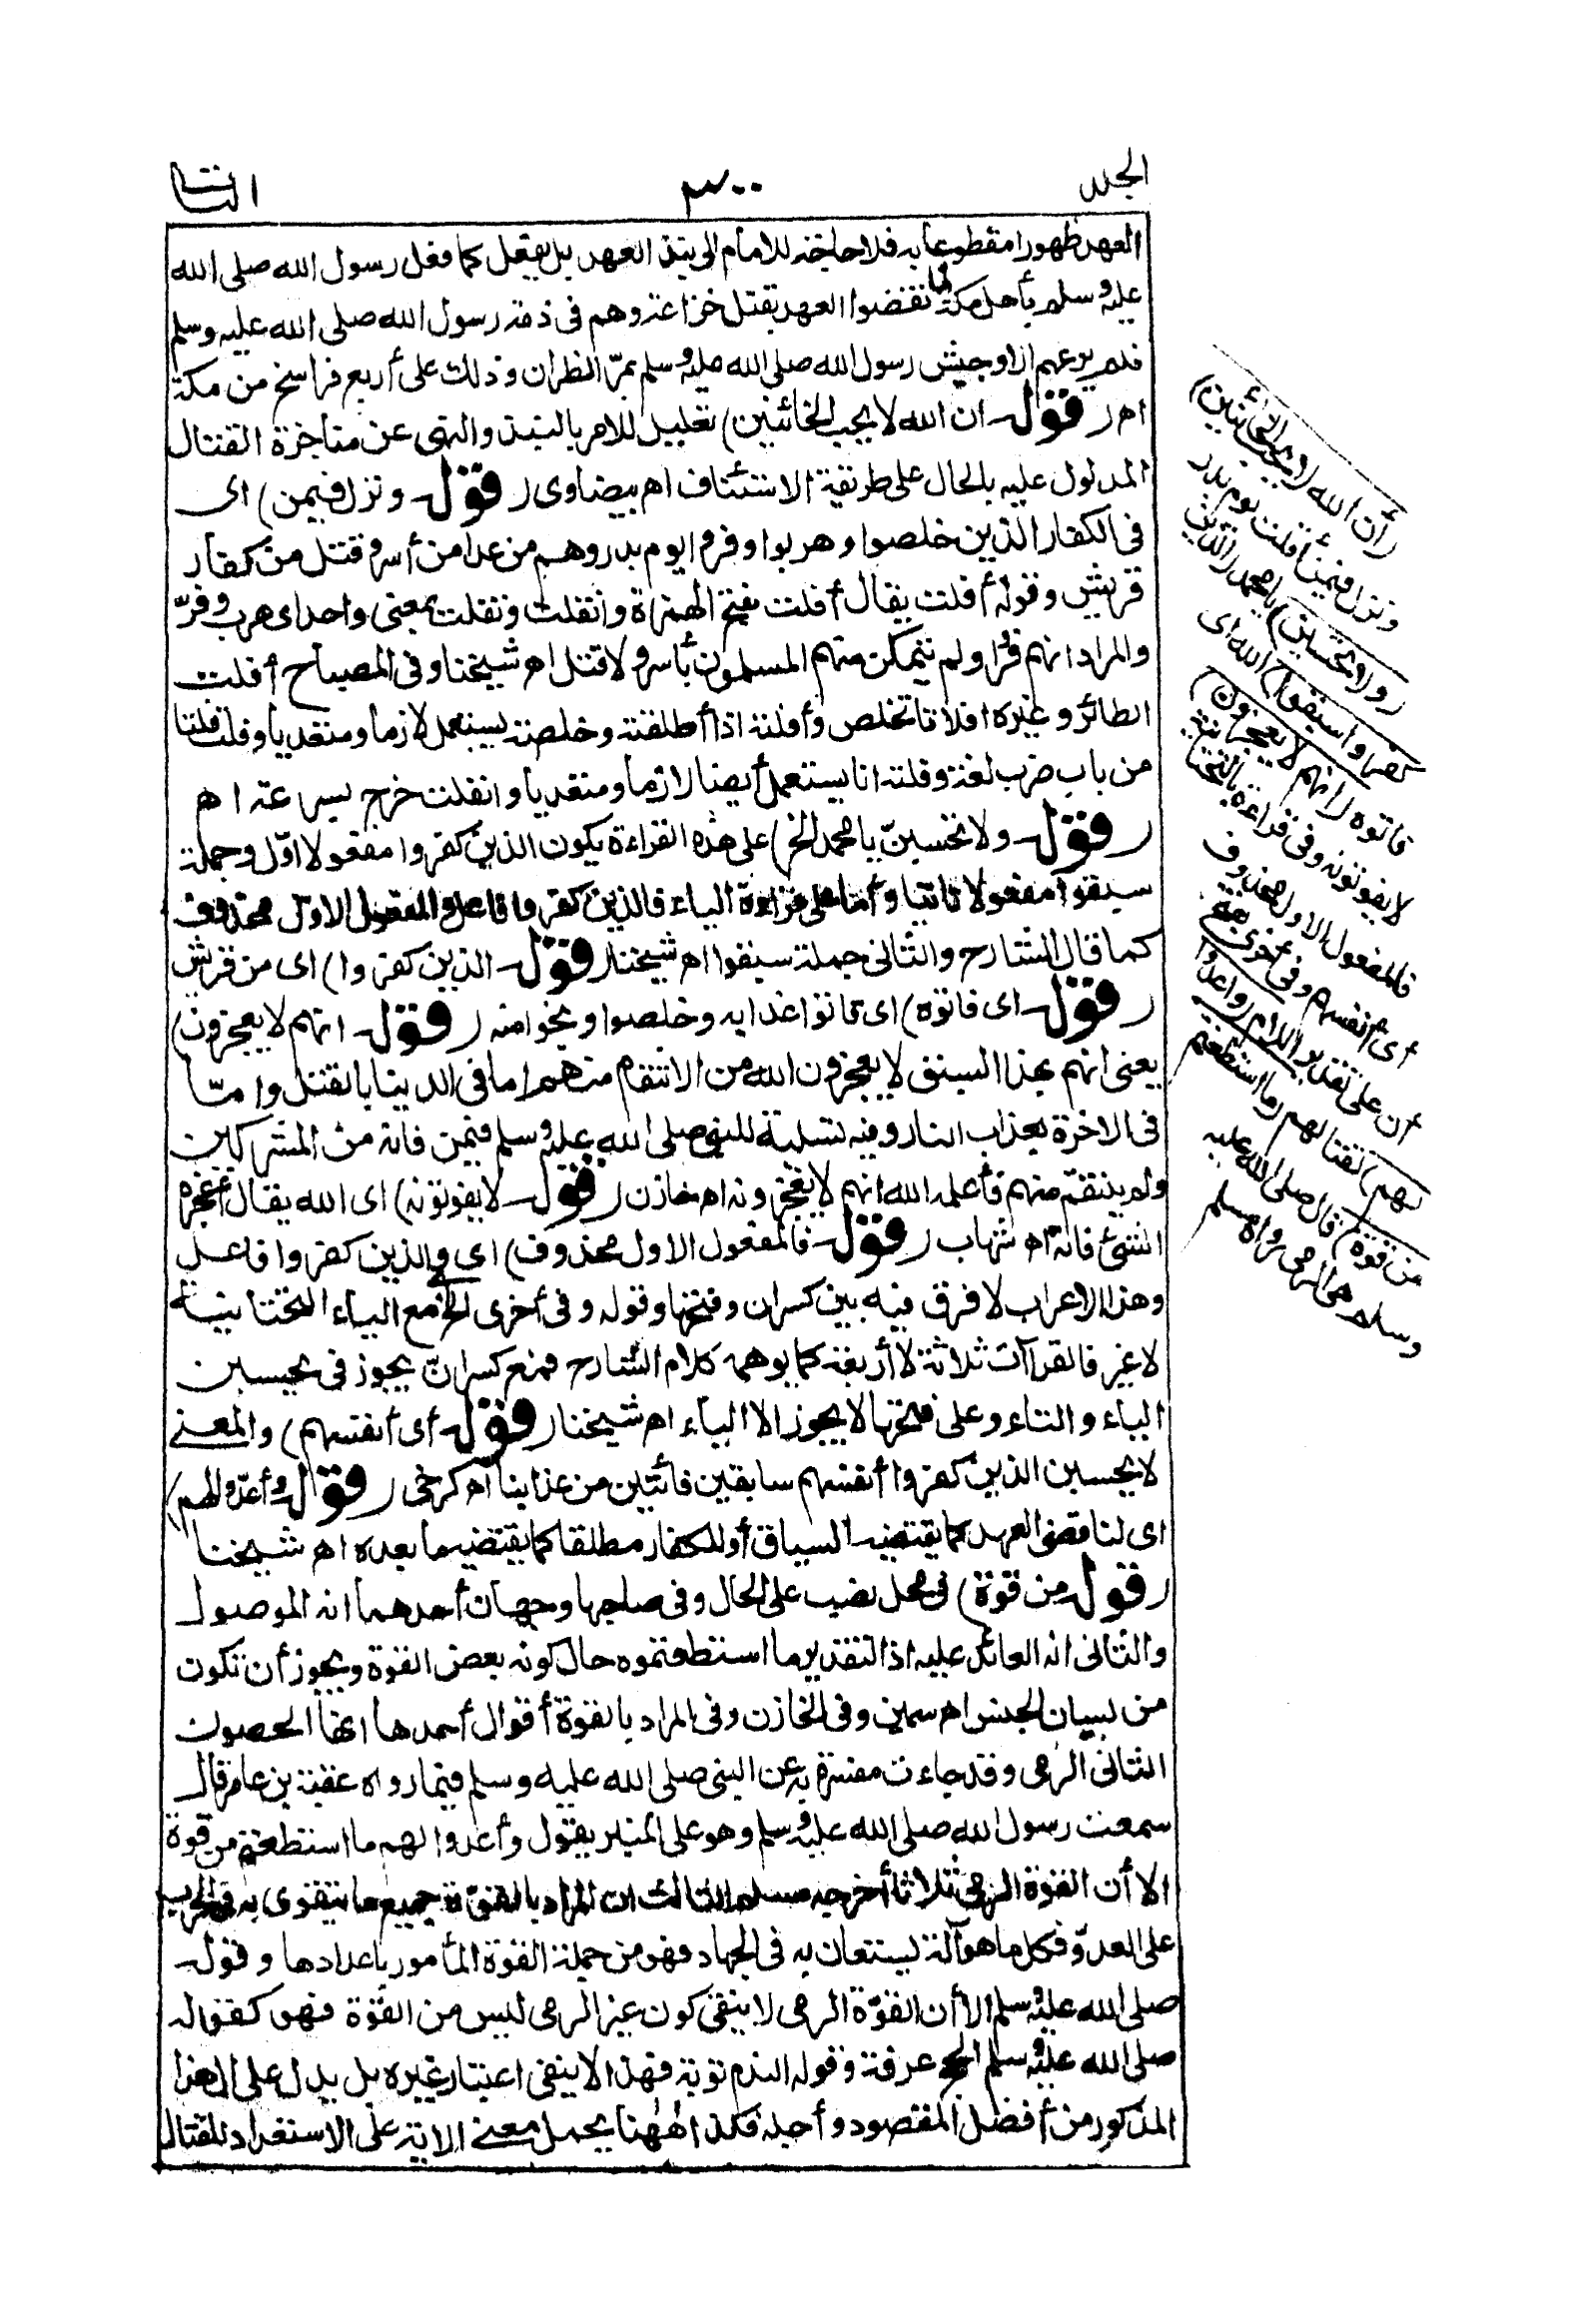 الجلد
٣٠٠
الثانى
العهد ظهورا مقطوعا به فلا حاجة للامام الى نبذ العهد بل يفعل كما فعل رسول الله صلى الله
عليه وسلم بأهل مكة لما نقضوا العهد بقتل خزاعة وهم فى ذمة رسول الله صلى الله عليه وسلم
فلم يرعهم الا وجيش رسول الله صلى الله عليه وسلم بمرّ الظهران وذلك على أربع فراسخ من مكة
اهـ (قوله ان الله لا يحب الخائنين) تعليل للامر بالنبذ والنهى عن مناجزة القتال
المدلول عليه بالحال على طريقة الاستئناف اهـ بيضاوى (قوله ونزل فيمن) اى
فى الكفار الذين خلصوا وهربوا وفروا يوم بدر وهم من عدا من أسر وقتل من كفار
قريش وقوله أفلت يقال أفلت بفتح الهمزة وانفلت وتفلت بمعنى واحد اى هرب وفرّ
والمراد انهم فروا ولم يتمكن منهم المسلمون بأسر ولا قتل اهـ شيخنا وفى المصباح أفلت
الطائر وغيره افلاتا تخلص وأفلته اذا أطلقته وخلصته يستعمل لازما ومتعديا وفلت فلتا
من باب ضرب لغة وفلته انا يستعمل أيضا لازما ومتعديا وانفلت خرج بسرعة اهـ
(قوله ولا تحسبنّ يا محمد الخ) على هذه القراءة يكون الذين كفروا مفعولا اوّل وجملة
سبقوا مفعولا ثانيا وأما على قراءة الياء فالذين كفروا فاعل والمفعول الاول محذوف
كما قال الشارح والثانى جملة سبقوا اهـ شيخنا (قوله الذين كفروا) اى من قريش
(قوله اى فاتوه) اى فاتوا عذابه وخلصوا ونجوا منه (قوله انهم لا يعجزون)
يعنى انهم بهذا السبق لا يعجزون الله من الانتقام منهم اما فى الدنيا بالقتل وامّا
فى الاخرة بعذاب النار وفيه تسلية للنبى صلى الله عليه وسلم فيمن فاته من المشركين
ولم ينتقم منهم فأعلمه الله انهم لا يعجزونه اهـ خازن (قوله لا يفوتونه) اى الله يقال أعجزه
الشئ فاته اهـ شهاب (قوله فالمفعول الاول محذوف) اى والذين كفروا فاعل
وهذا الاعراب لا فرق فيه بين كسر ان وفتحها وقوله وفى أخرى الخ مع الياء التحتانية
لا غير فالقراآت ثلاثة لا أربعة كما يوهمه كلام الشارح فمع كسر انّ يجوز فى يحسبن
الياء والتاء وعلى فتحها لا يجوز الا الياء اهـ شيخنا (قوله أى أنفسهم) والمعنى
لا يحسبن الذين كفروا أنفسهم سابقين فائتين من عذابنا اهـ كرخى (قوله وأعدوا لهم)
اى لناقضى العهد كما يقتضيه السياق أو للكفار مطلقا كما يقتضيه ما بعده اهـ شيخنا
(قوله من قوة) فى محل نصب على الحال وفى صاحبها وجهان أحدهما انه الموصول
والثانى انه العائد عليه اذ التقدير ما استطعتموه حال كونه بعض القوة ويجوز أن تكون
من لبيان الجنس اهـ سمين وفى الخازن وفى المراد بالقوة أقوال أحدها انها الحصون
الثانى الرمى وقد جاءت مفسرة به عن النبى صلى الله عليه وسلم فيما رواه عقبة بن عامر قال
سمعت رسول الله صلى الله عليه وسلم وهو على المنبر يقول وأعدوا لهم ما استطعتم من قوة
الا أن القوة الرمى ثلاثا أخرجه مسلم الثالث ان المراد بالقوّة جميع ما يتقوى به فى الحرب
على العدوّ فكل ما هو آلة يستعان به فى الجهاد فهو من جملة القوة المأمور باعدادها وقوله
صلى الله عليه وسلم الا أن القوّة الرمى لا ينفى كون غير الرمى ليس من القوّة فهو كقوله
صلى الله عليه وسلم الحج عرفة وقوله الندم توبة فهذا لا ينفى اعتبار غيره بل يدل على ان هذا
المذكور من أفضل المقصود وأجله فكذا ههنا يحمل معنى الاية على الاستعداد للقتال
(أن الله لا يحب الخائنين)
ونزل فيمن أفلت يوم بدر
(ولا تحسبن) يا محمد (الذين
كفروا سبقوا) الله اى
فاتوه (انهم لا يعجزون)
لا يفوتونه وفى قراءة بالتحتانية
فالمفعول الاول محذوف
أى أنفسهم وفى أخرى بفتح
أن على تقدير اللام (وأعدوا
لهم) لقتالهم (ما استطعتم
من قوة) قال صلى الله عليه
وسلم هى الرمى رواه مسلم